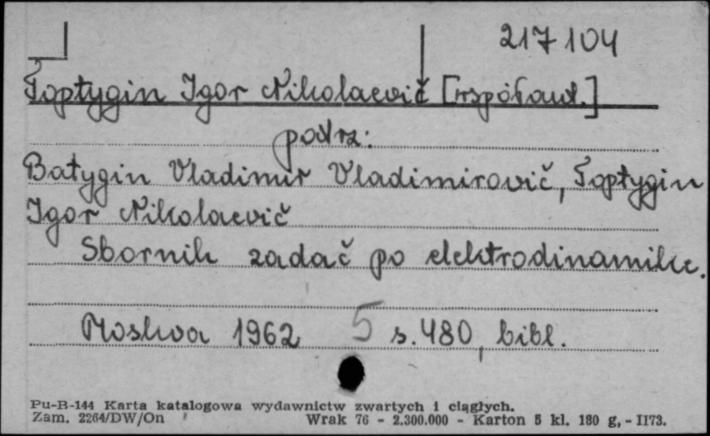 217104
Toptygin Igor Nikolaevič [współaut.]
patrz:
Batygin Vladimir Vladimirovič, Toptygin
Igor Nikolaevič
Sbornik zadač po elektrodinamike.
Moskva 1962 5 s. 480, bibl.
Pu-B-144 Karta katalogowa wydawnictw zwartych i ciągłych.
Zam. 2264/DW/On Wrak 76 - 2.300.000 - Karton 5 kl. 180 g, - II73.